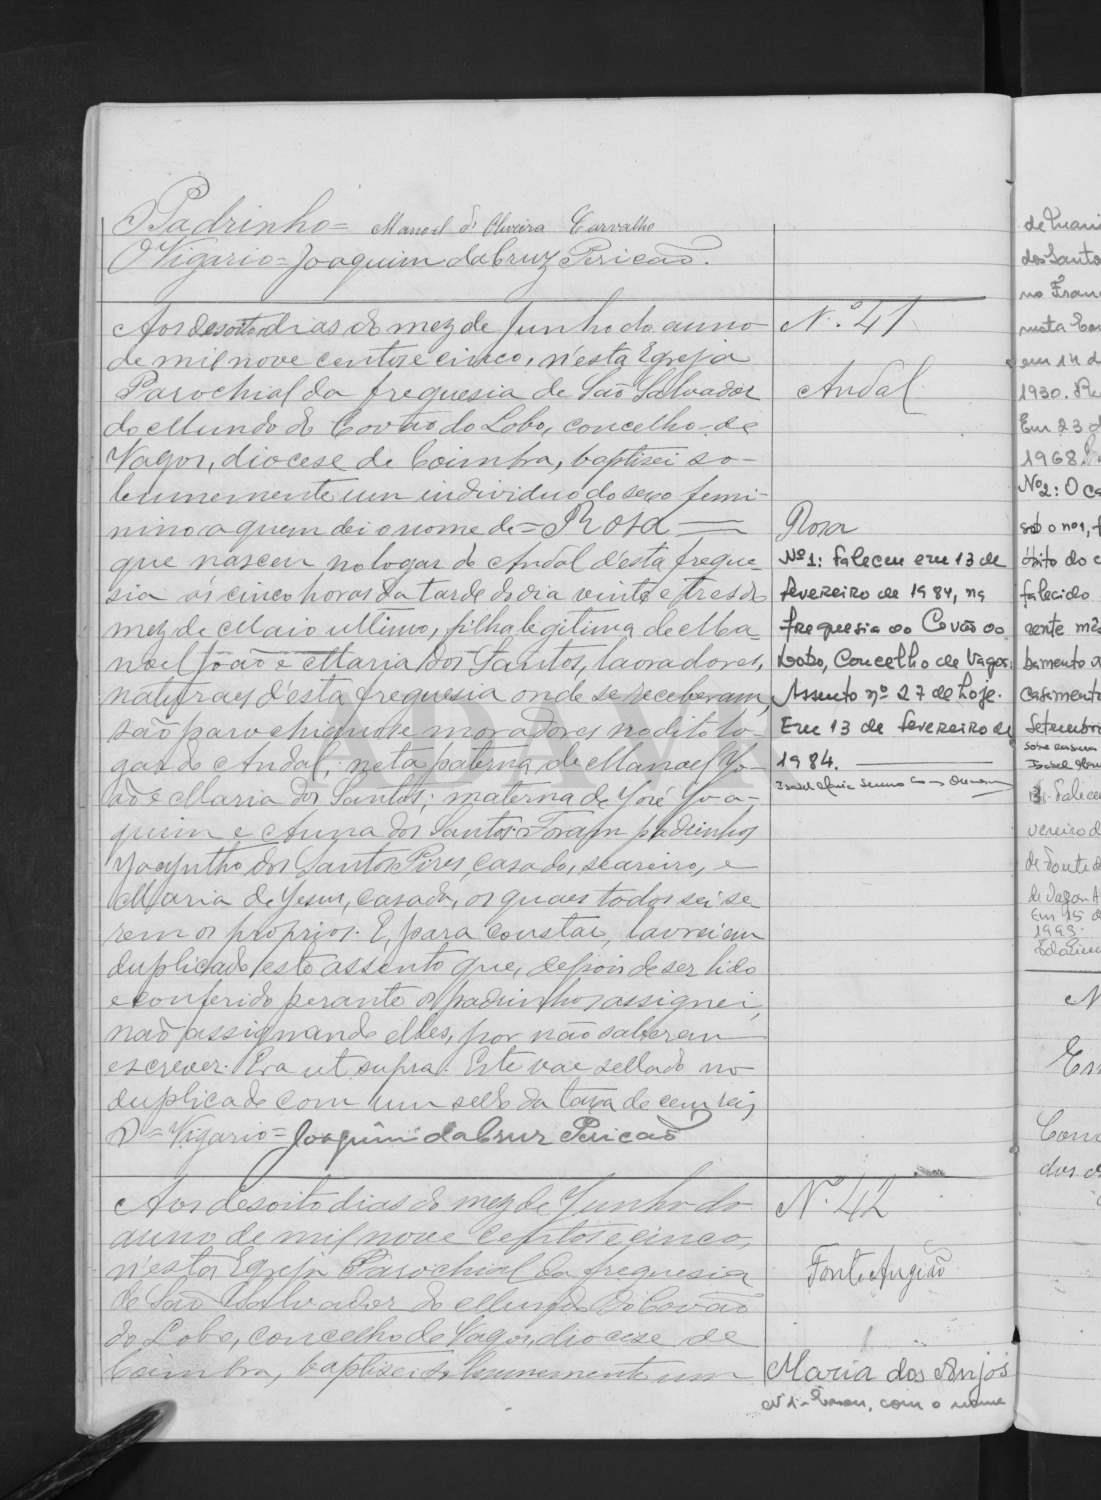 Padrinho = Manoel d' Oliveira Carvalho
O Vigario = Joaquim da Cruz Pericaõ.
Aos desoito dias do mez de Junho do anno
de mil nove centos e cinco, n'esta Egreja
Parochial da freguesia de São Salvador
do Mundo de Covão do Lobo, concelho de
Vagos, diocese de Coimbra, baptisei so-
lemnemente um individuo do sexo femi-
nino a quem dei o nome de = Rosa =
que nasceu no logar de Andal d'esta fregue-
sia ás cinco horas da tarde do dia vinte e tres do
mez de Maio ultimo, filha legitima de Ma-
noel João e Maria dos Santos, lavradores,
naturaes d'esta freguesia onde se receberam,
são parochianos e moradores no dito lo-
gar de Andal, neta paterna de Manoel Jo-
ão e Maria dos Santos; materna de José Joa-
quim e Anna dos Santos. Foram padrinhos
Jacyntho dos Santos Pires, casado, seareiro, e
Maria de Jesus, casada, os quaes todos sei se-
rem os proprios. E, para constar, lavrei em
duplicado este assento que, depois de ser lido
e conferido perante os padrinhos, assignei,
não assignando elles, por não saberem
escrever. Era ut supra. Este vae sellado no
duplicado com um sello da taxa de cem reis,
O = Vigario = Joaquim da Cruz Pericaõ
Aos desoito dias do mez de Junho do
anno de mil nove centos e cinco,
n'esta Egreja Parochial da freguesia
de São Salvador do Mundo do Covaõ
do Lobo, concelho de Vagos, diocese de
Coimbra, baptisei solemnemente um
N.º 41
Andal
Rosa
Nº 1: Faleceu em 13 de
fevereiro de 1984, na
freguesia do Covão do
Lobo, Concelho de Vagos.
Assento nº 27 de hoje.
Em 13 de fevereiro de
1984.
N.º 42
Fonte Angião
Maria dos Anjos
Nº 1 - com o nome
dos Santo
no Fran
em 14 d
1930.
Em 23 d
1968
Nº2: O ca
sob o nº1, f
óbito do c
falecido
bamento
casamento
Setembro
3. Falece
vereiro d
de Fonte d
de Vagos A
Em 15 d
1993.
N
Cove
dos
ADAVR